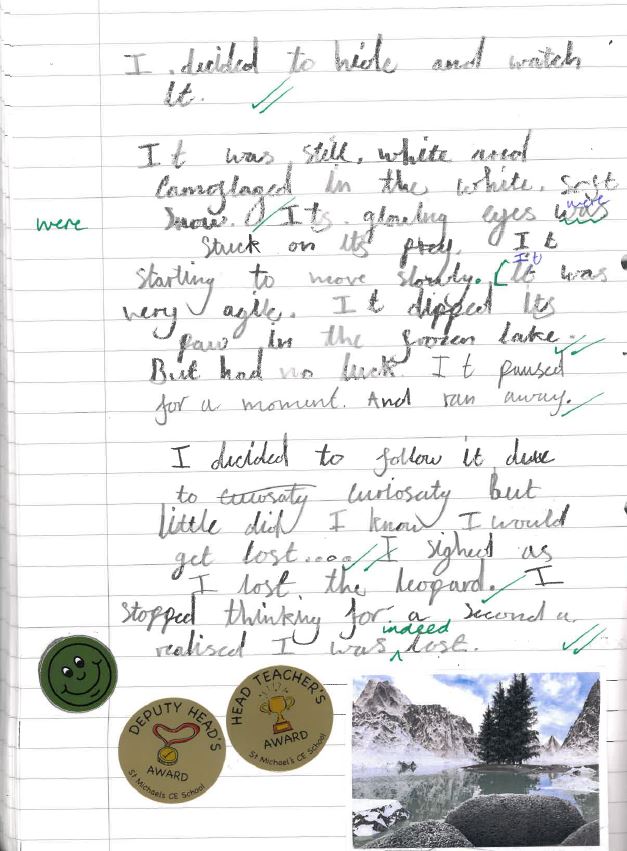 I decided to hide and watch
it.
It was still, white and
camoflaged in the white, soft
were snow. Its glowing eyes was were
stuck on its prey. It
starting to move slowly. [It It was
very agile. It dipped its
paw in the frozen lake.
But had no luck. It paused
for a moment. And ran away.
I decided to follow it due
to curiosaty curiosaty but
little did I know I would
get lost.... I sighed as
I lost the leopard. I
stopped thinking for a second a
realised I was indeed lost.
DEPUTY HEAD'S
AWARD
St Michael's CE School
HEAD TEACHER'S
AWARD
St Michael's CE School